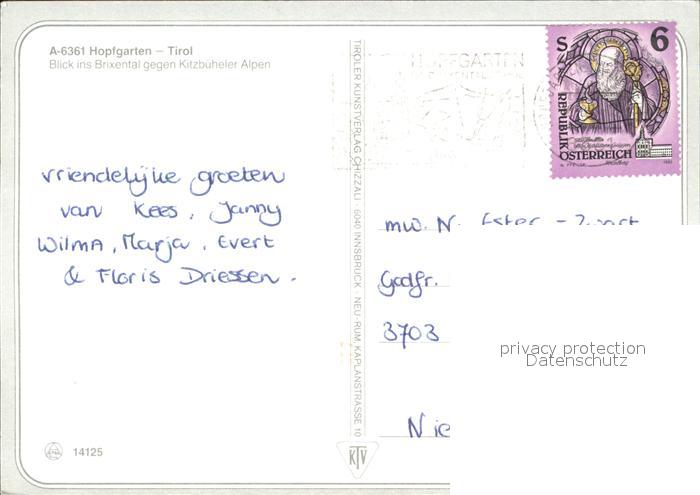 A-6361 Hopfgarten – Tirol
Blick ins Brixental gegen Kitzbüheler Alpen
vriendelijke groeten
van Kees, Janny
Wilma, Marja, Evert
& Floris Driessen.
14125
TIROLER KUNSTVERLAG CHIZZALI · 6040 INNSBRUCK · NEU-RUM, KAPLANSTRASSE 10
KTV
HOPFGARTEN
S 6
REPUBLIK
ÖSTERREICH
mw. N. Ester -
Godfr.
3703
Nie
privacy protection
Datenschutz